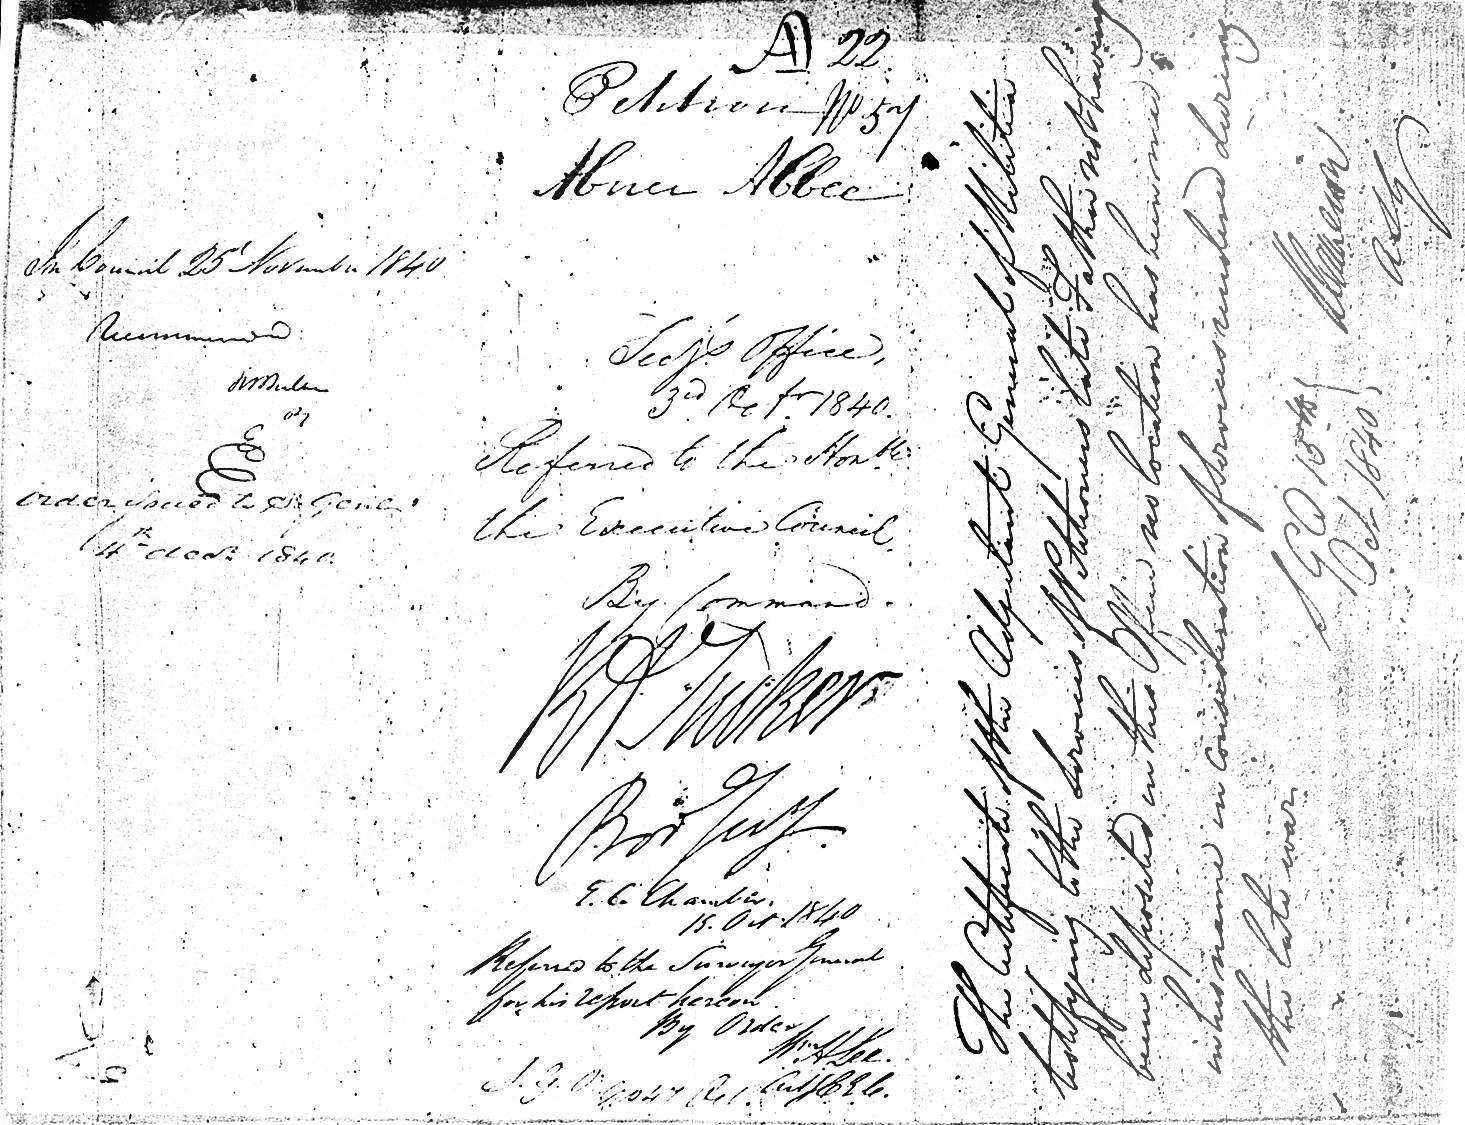 A 22
Petition No 57
Abner Abbee
In Council 25th November 1840
Recommended
Order issued to S. Genl.
14th Decr 1840.
Secy's Office,
3rd Octr 1840.
Referred to the Honble
the Executive Council.
By Command.
R A Tucker
Prov Secy.
E. C. Chamber,
15. Oct 1840
Referred to the Surveyor General
for his report hereon
By Order
Wm H Lee.
Actg C E C.
S. G. O.
The Certificate of the Adjutant General of Militia
testifying to the Services of Petitioners late Father not having
been deposited in this Office no location has been made
in his name in consideration of services rendered during
the late war.
S G O 15th
Oct 1840